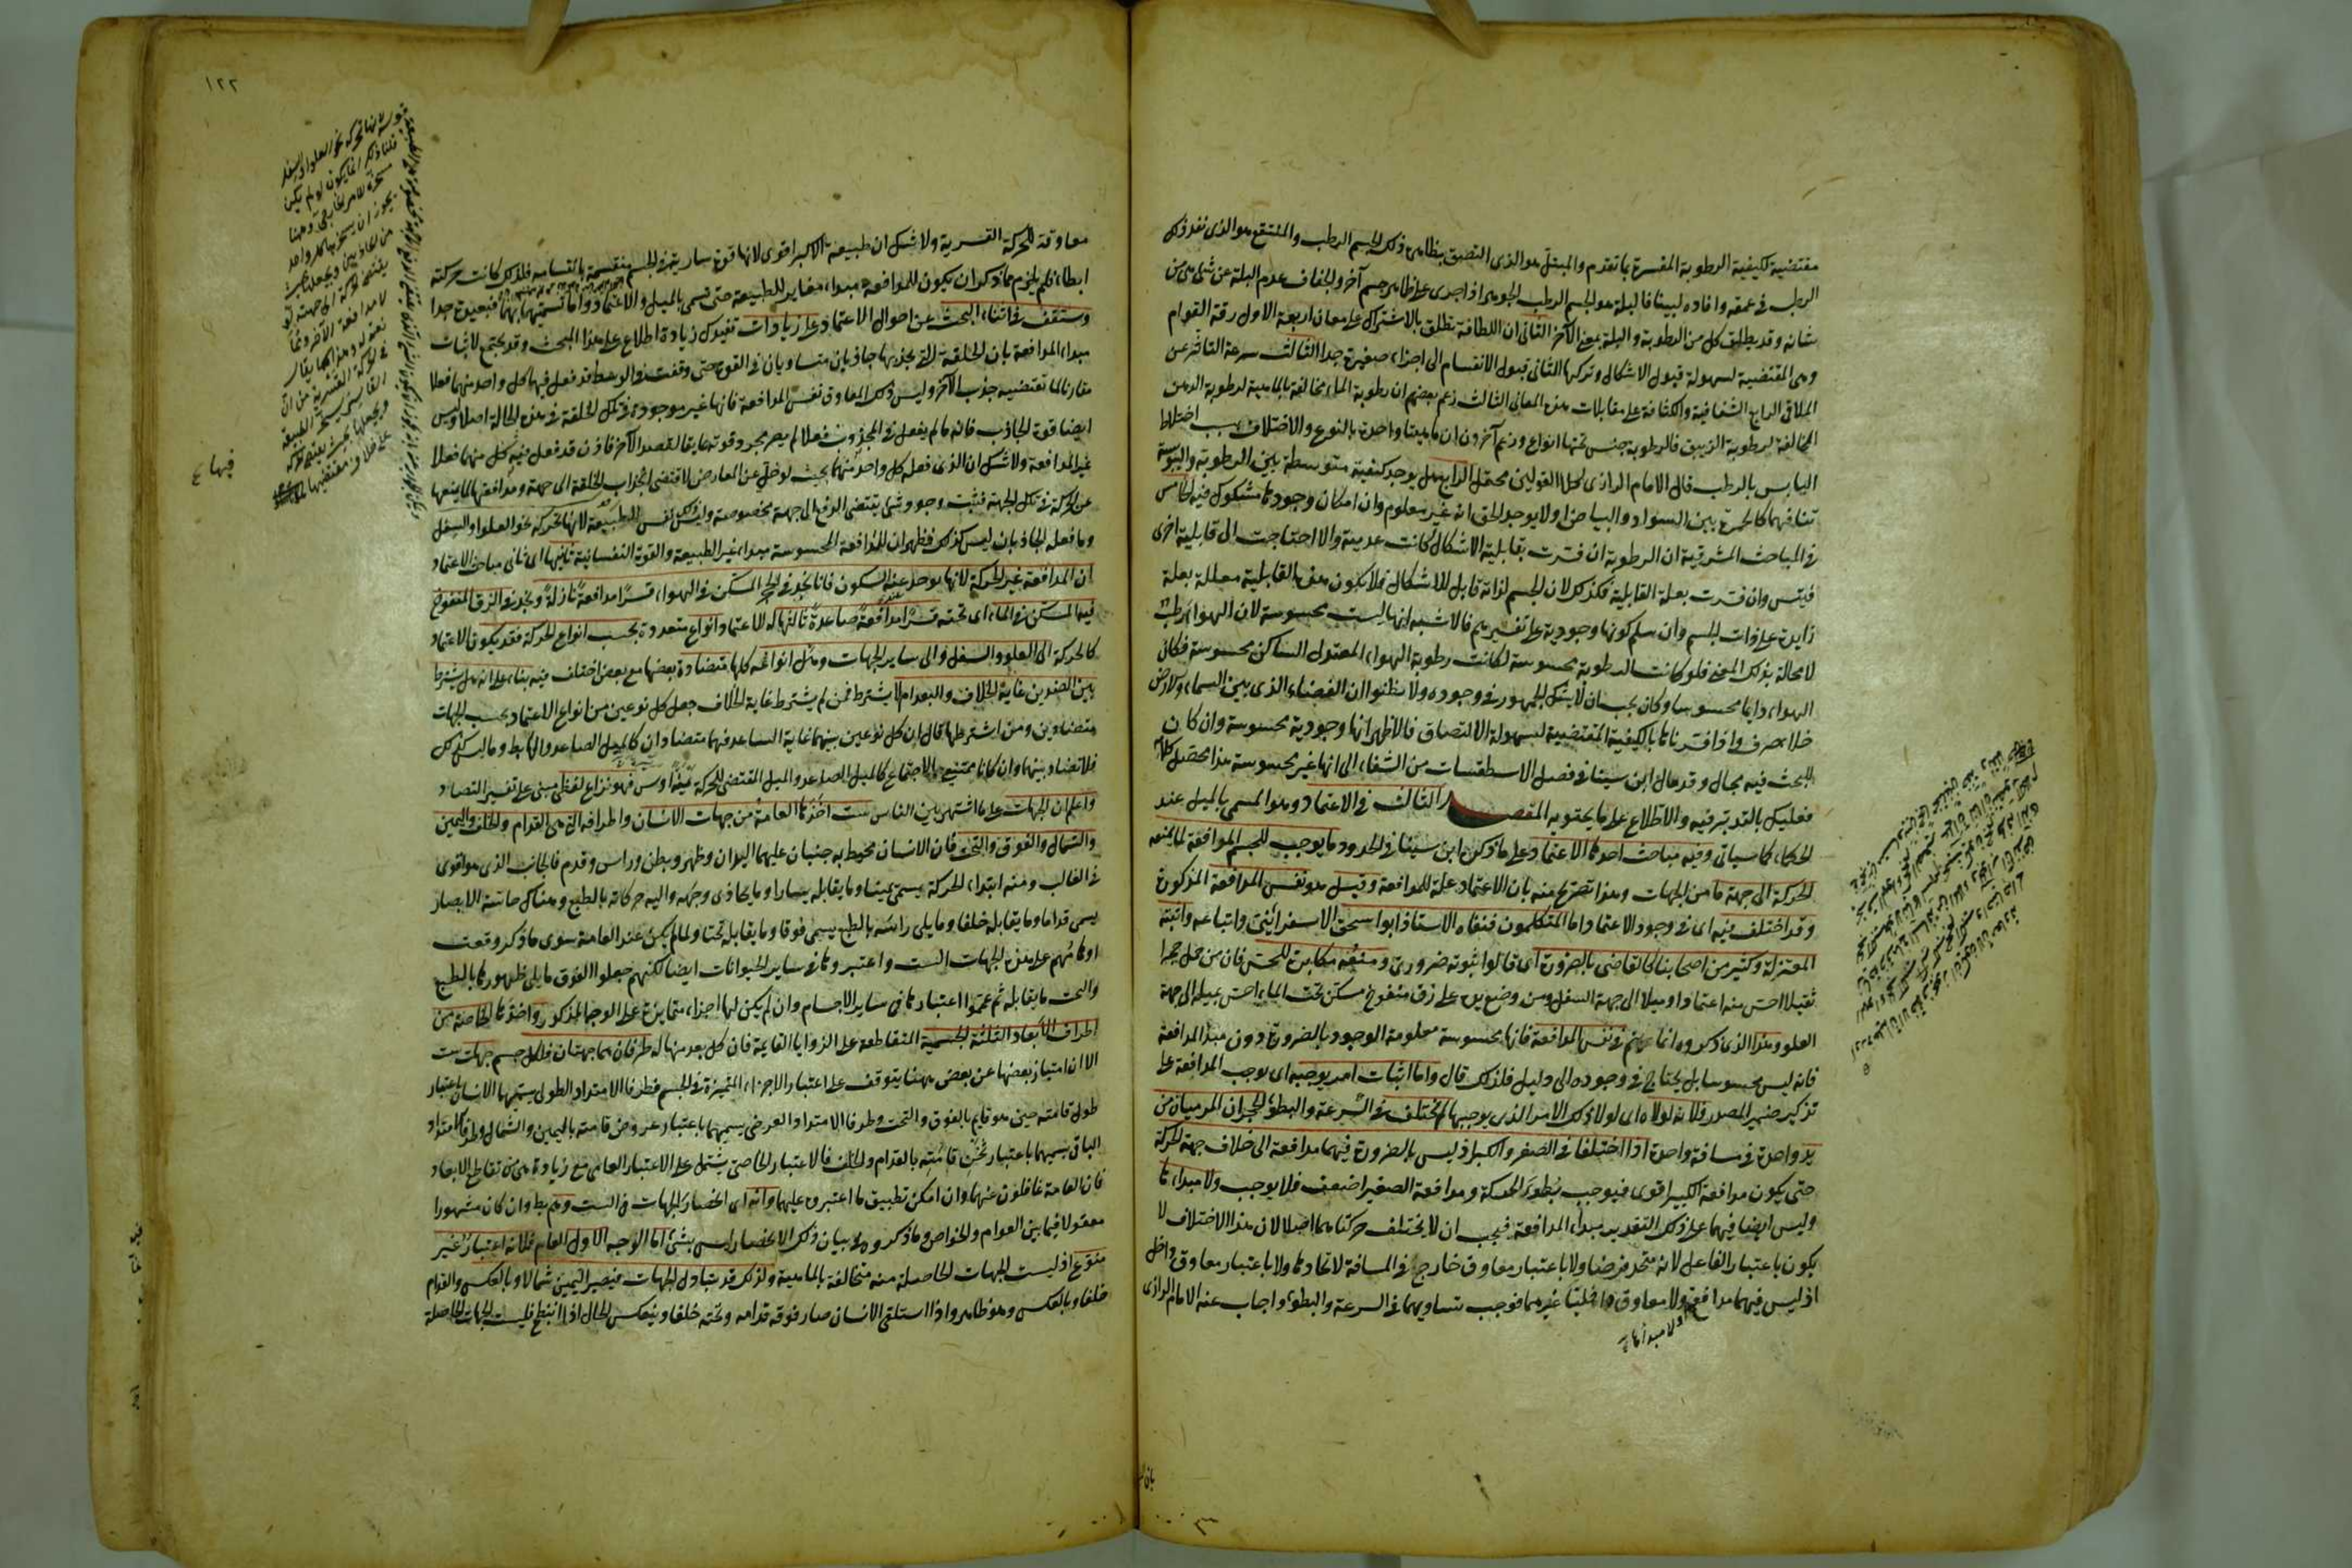 مقتضية لكيفية الرطوبة المفسرة بما تقدم والمبتل هو الذى التصق بظاهره ذلك الجسم الرطب والمنتقع هو الذى نفذ ذلك
الرطب فى عمقه وافاده لينا فالبلة هو الجسم الرطب الجوهر اذا جرى على ظاهر جسم آخر والجفاف عدم البلة عن شئ هى من
شانه وقد يطلق كل من الرطوبة والبلة بمعنى الآخر الثانى ان اللطافة تطلق بالاشتراك على معان اربعة الاول رقة القوام
وهى المقتضية لسهولة قبول الاشكال وتركها الثانى قبول الانقسام الى اجزاء صغيرة جدا الثالث سرعة التاثر عن
الملاقى الرابع الشفافية والكثافة على مقابلات هذه المعانى الثالث زعم بعضهم ان رطوبة الماء مخالفة بالماهية لرطوبة الدهن
المخالفة لرطوبة الزيبق فالرطوبة جنس تحتها انواع وزعم آخرون ان ماهيتها واحدة بالنوع والاختلاف بسبب اختلاط
اليابس بالرطب قال الامام الرازى كلا القولين محتمل الرابع هل يوجد كيفية متوسطة بين الرطوبة واليبوسة
تنافيهما كالحمرة بين السواد والبياض او لا يوجد الحق انه غير معلوم وان امكان وجودها مشكوك فيه الخامس
فى المباحث المشرقية ان الرطوبة ان فسرت بقابلية الاشكال كانت عدمية والا احتاجت الى قابلية اخرى
فيتس وان فسرت بعلة القابلية فكذلك لان الجسم لذاته قابل للاشكال فلا يكون هذه القابلية معللة بعلة
زايدة على ذات الجسم وان سلم كونها وجودية على تفسيرهم فالاشبه انها ليست محسوسة لان الهواء رطب
لا محالة بذلك المعنى فلو كانت الرطوبة محسوسة لكانت رطوبة الهواء المعتدل الساكن محسوسة فكان
الهواء دايما محسوسا وكان يجب ان لا يشك الجمهور فى وجوده ولا يظنوا ان الفضاء الذى بين السماء والارض
خلاء صرف واذا فسرناها بالكيفية المقتضية لسهولة الالتصاق فالاظهر انها وجودية محسوسة وان كان
للبحث فيه مجال وقد مال ابن سينا فى فصل الاسطقسات من الشفاء الى انها غير محسوسة هذا محصل كلامه
فعليك بالتدبر فيه والاطلاع على ما يحتويه المقصد الثالث فى الاعتماد وهو المسمى بالميل عند
الحكماء كما سياتى وفيه مباحث احدها الاعتماد على ما ذكره ابن سينا فى الحدود ما يوجب للجسم المدافعة لما يمنعه
الحركة الى جهة ما من الجهات وهذا تصريح منه بان الاعتماد علة للمدافعة وقيل هو نفس المدافعة المذكورة
وقد اختلف فيه اى فى وجود الاعتماد اما المتكلمون فنفاه الاستاذ ابو اسحق الاسفراينى واتباعه واثبته
المعتزلة وكثير من اصحابنا كالقاضى بالضرورة اى قالوا ثبوته ضرورى ومنعه مكابرة للحس فان من حمل حجرا
ثقيلا احس منه اعتمادا وميلا الى جهة السفل ومن وضع يده على زق منفوخ مسكن تحت الماء احس بميله الى جهة
العلو وهذا الذى ذكروه انما يتم فى نفس المدافعة فانها محسوسة معلومة الوجود بالضرورة دون مبدا المدافعة
فانه ليس محسوسا بل يحتاج فى وجوده الى دليل فلذلك قال واما اثبات امر يوجبه اى يوجب المدافعة على
تذكير ضمير المصدر فلانه لولاه اى لولا ذلك الامر الذى يوجبها لم يختلف فى السرعة والبطؤ الحجران المرميان من
يد واحدة فى مسافة واحدة اذا اختلفا فى الصغر والكبر اذ ليس بالضرورة فيهما مدافعة الى خلاف جهة الحركة
حتى يكون مدافعة الكبير اقوى فيوجب بطؤ الحركة ومدافعة الصغير اضعف فلا يوجب ولا مبداءها
وليس ايضا فيهما على ذلك التقدير مبداء المدافعة فيجب ان لا يختلف حركتاهما اصلا لان هذا الاختلاف لا
يكون باعتبار الفاعل لانه متحد فرضا ولا باعتبار معاوق خارج فى المسافة لاتحادها ولا باعتبار معاوق داخل
اذ ليس فيهما مدافعة ولا معاوق داخليا غيرهما فوجب تساويهما فى السرعة والبطؤ واجاب عنه الامام الرازى
ولا مبدأها
بان
١٢٢
معاوقة للحركة القسرية ولا شك ان طبيعة الاكبر اقوى لانها قوة سارية فى الجسم منقسمة بانقسامه فلذلك كانت حركته
ابطاء فلم يلزم مما ذكر ان يكون للمدافعة مبداء مغاير للطبيعة حتى تسمى بالميل والاعتماد واما تسميتها بهما فبعيدة جدا
وستقف فى اثناء البحث عن احوال الاعتماد على زيادات تفيدك زيادة اطلاع على هذا المبحث وقد يحتج لاثبات
مبداء المدافعة بان الحلقة التى يجذبها جاذبان متساويان فى القوة حتى وقفت فى الوسط قد فعل فيها كل واحد منهما فعلا
مقارنا لما تقتضيه جذب الآخر وليس ذلك المعاوق نفس المدافعة فانها غير موجودة فى تلك الحلقة فى هذه الحالة اصلا وليس
ايضا قوة الجاذب فانه ما لم يفعل فى المجذوب فعلا لم يصر مجرد قوته عايقا لقصد الآخر فاذن قد فعل فيه كل منهما فعلا
غير المدافعة ولا شك ان الذى فعله كل واحد منهما بحيث لو خلى عن المعارض لاقتضى انجذاب الحلقة الى جهة ومدافعتها لما يمنعها
عن الحركة فى تلك الجهة فثبت وجود شئ يقتضى الدفع الى جهة مخصوصة وليس ذلك نفس الطبيعة لانها تحركه نحو العلو او السفل
وما فعله الجاذبان ليس كذلك فظهر ان للمدافعة المحسوسة مبداء غير الطبيعة والقوة النفسانية ثانيها اى ثانى مباحث الاعتماد
ان المدافعة غير الحركة لانها توجد عند السكون فانا نجد فى الحجر المسكن فى الهواء قسرا مدافعة نازلة ونجد فى الزق المنفوخ
فيه المسكن فى الماء اى تحته قسرا مدافعة صاعدة ثالثها له للاعتماد انواع متعددة بحسب انواع الحركة فقد يكون الاعتماد
كالحركة الى العلو والسفل والى ساير الجهات وهل انواعه كلها متضادة بعضها مع بعض اختلف فيه بناء على انه هل يشترط
بين الضدين غاية الخلاف والبعد ام لا يشترط فمن لم يشترط غاية الخلاف جعل كل نوعين من انواع الاعتماد بحسب الجهات
متضادين ومن اشترطها قال ان كل نوعين بينهما غاية التباعد فهما متضادان كالميل الصاعد والهابط وما ليس كذلك
فلا تضاد بينهما وان كانا ممتنعى الاجتماع كالميل الصاعد والميل المقتضى للحركة يمنة او يسرة فهو نزاع لفظى مبنى على تفسير التضاد
واعلم ان الجهات على ما اشتهر بين الناس ست اخذها العامة من جهات الانسان واطرافه التى هى القدام والخلف واليمين
والشمال والفوق والتحت فان الانسان محيط به جنبان عليهما اليدان وظهر وبطن وراس وقدم فالجانب الذى هو اقوى
فى الغالب ومنه ابتداء الحركة يسمى يمينا وما يقابله يسارا وما يحاذى وجهه واليه حركاته بالطبع وهناك حاسة الابصار
يسمى قداما وما يقابله خلفا وما يلى راسه بالطبع يسمى فوقا وما يقابله تحتا ولما لم يكن عند العامة سوى ما ذكر وقعت
اوهامهم على هذه الجهات الست واعتبروها فى ساير الحيوانات ايضا لكنهم جعلوا الفوق ما يلى ظهورها بالطبع
والتحت ما يقابله ثم عمموا اعتبارها فى ساير الاجسام وان لم يكن لها اجزاء متمايزة على الوجه المذكور واخذها الخاصة من
اطراف الابعاد الثلثة الجسمية المتقاطعة على الزوايا القايمة فان كل بعد منها له طرفان هما جهتان فلكل جسم جهات ست
الا ان امتياز بعضها عن بعض ههنا يتوقف على اعتبار الاجزاء المتميزة فى الجسم فطرفا الامتداد الطولى يسميها الانسان باعتبار
طول قامته حين هو قايم بالفوق والتحت وطرفا الامتداد العرضى يسميهما باعتبار عرض قامته باليمين والشمال وطرفا الامتداد
الباقى يسميهما باعتبار ثخن قامته بالقدام والخلف فالاعتبار الخاصى يشتمل على الاعتبار العامى مع زيادة هى تقاطع الابعاد
فان العامة غافلون عنها وان امكن تطبيق ما اعتبروه عليها وانه اى انحصار الجهات فى الست وهم يط وان كان مشهورا
معقولا فيما بين العوام والخواص وما ذكروه لبيان ذلك الانحصار ليس بشئ اما الوجه الاول العام فلانه اعتبار غير
منوع اذ ليست الجهات الحاصلة منه متخالفة بالماهية ولذلك قد يتبادل الجهات فيصير اليمين شمالا وبالعكس والقدام
خلفا وبالعكس وهو ظاهر واذا استلقى الانسان صار فوقه قدامه وتحته خلفا وينعكس الحال اذا انبطح فليست الجهات الحاصلة
فيها ع